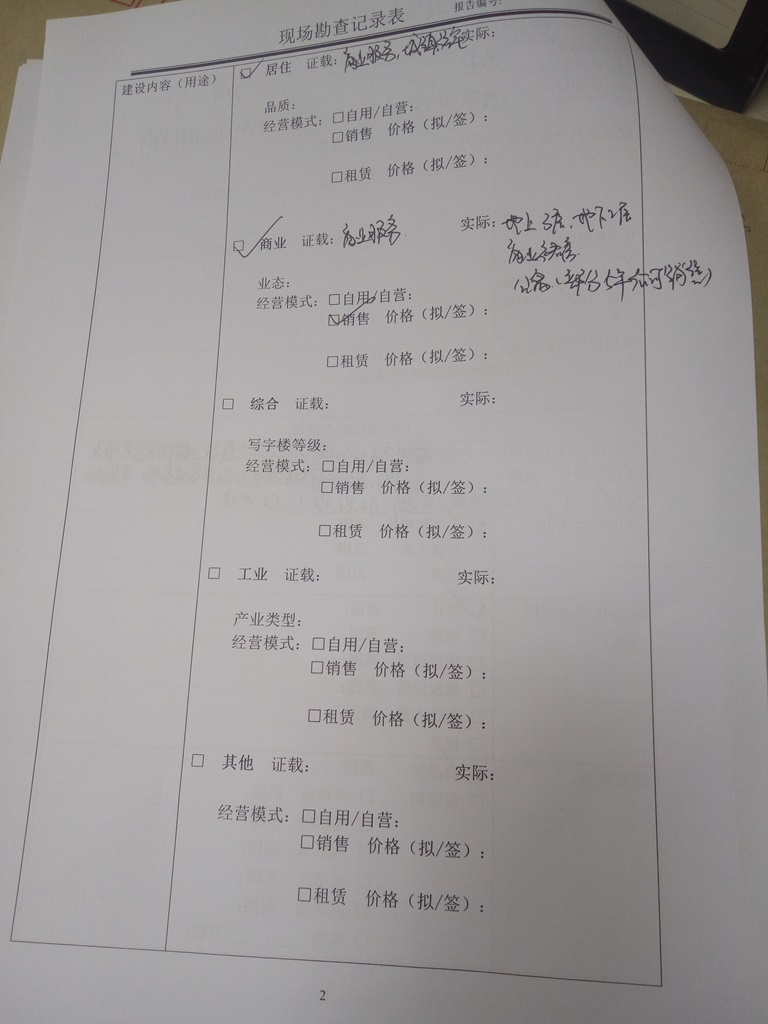 现场勘查记录表
报告编号:
建设内容（用途）
☑ 居住 证载：商业服务，城镇住宅 实际：
品质：
经营模式：□自用/自营：
□销售 价格（拟/签）：
□租赁 价格（拟/签）：
☑ 商业 证载：商业服务 实际：地上3层，地下2层
商业
业态：
经营模式：□自用/自营：
☑销售 价格（拟/签）：
□租赁 价格（拟/签）：
□ 综合 证载： 实际：
写字楼等级：
经营模式：□自用/自营：
□销售 价格（拟/签）：
□租赁 价格（拟/签）：
□ 工业 证载： 实际：
产业类型：
经营模式：□自用/自营：
□销售 价格（拟/签）：
□租赁 价格（拟/签）：
□ 其他 证载： 实际：
经营模式：□自用/自营：
□销售 价格（拟/签）：
□租赁 价格（拟/签）：
2